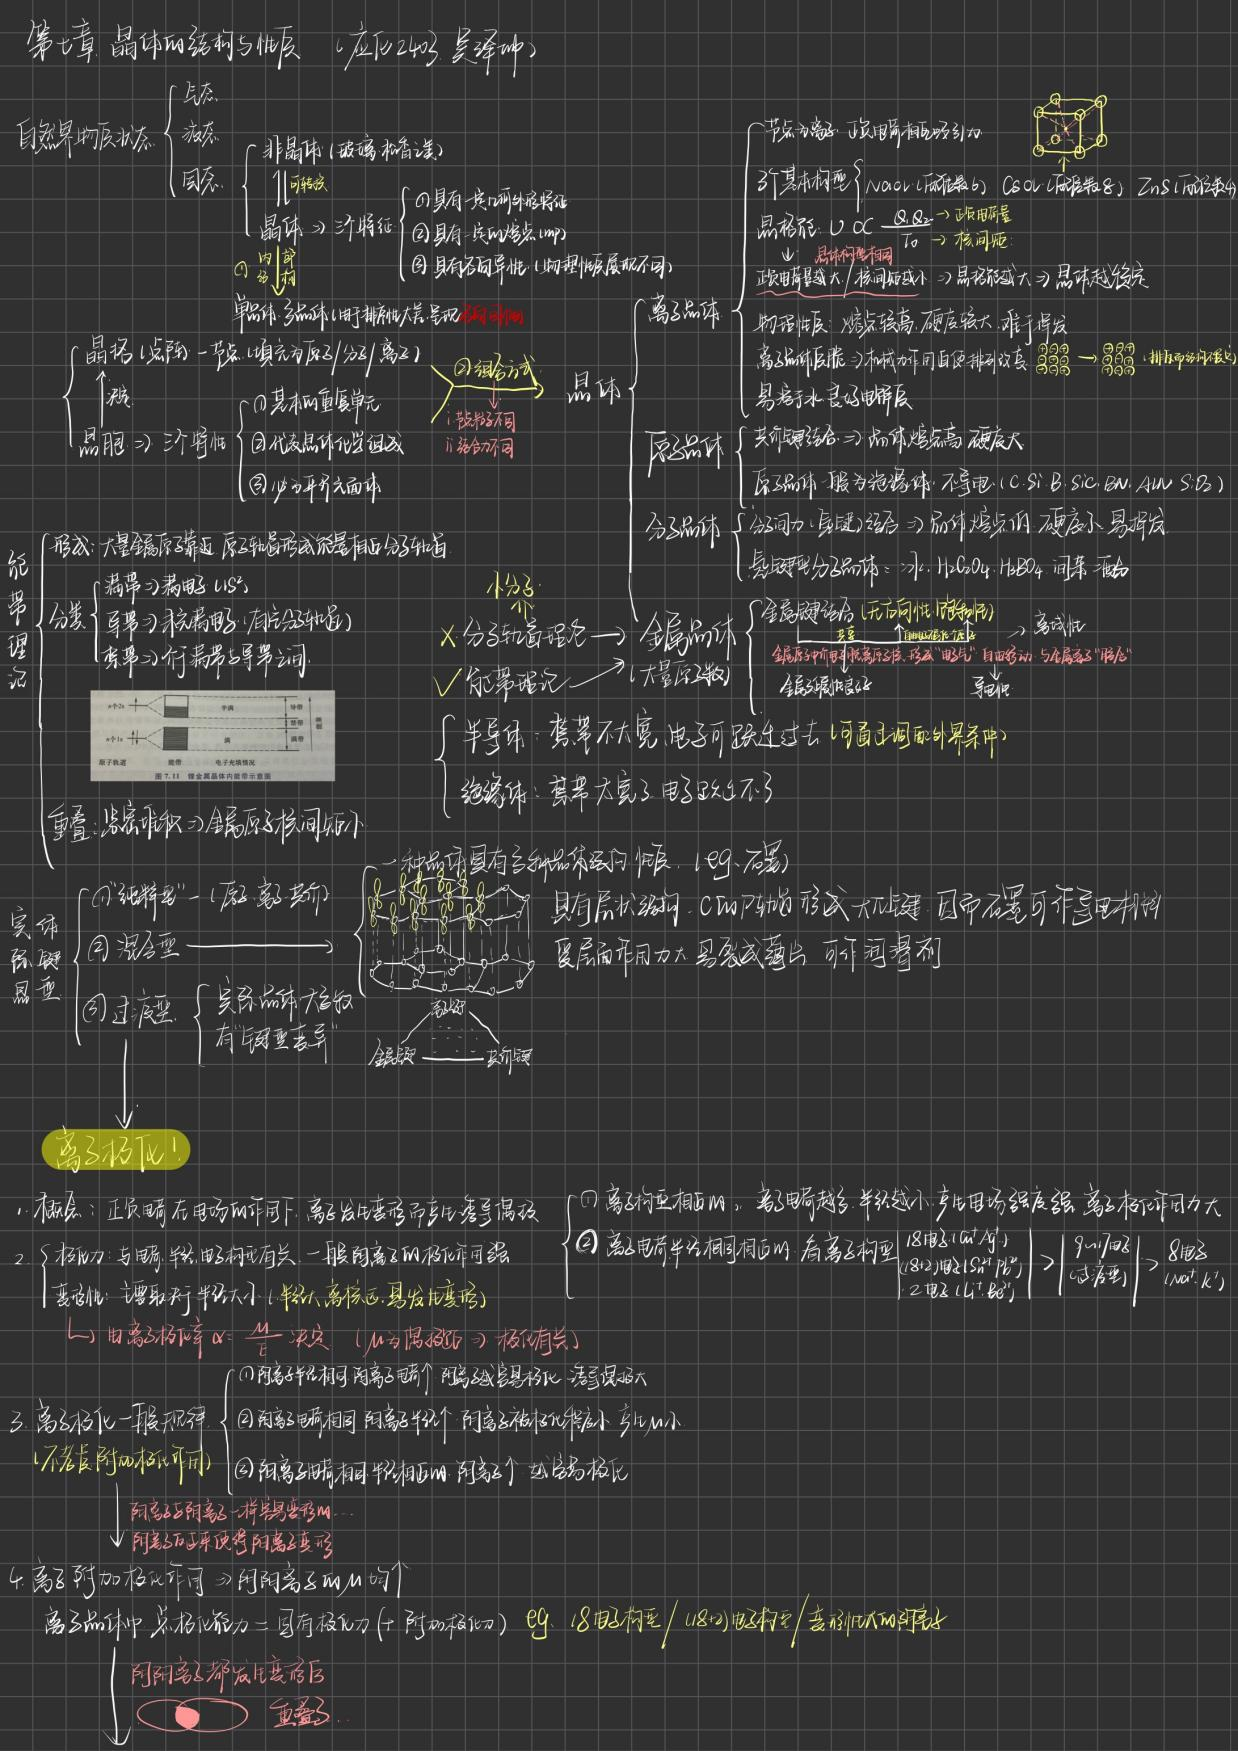 第七章 晶体的结构与性质 (应化2403 吴泽坤)
自然界物质状态
气态
液态
固态
非晶体 (玻璃·松香之类)
可转换
晶体 ⇒ 三个特征
① 具有一定几何外形特征
② 具有一定的熔点(mp)
③ 具有各向异性 (物理性质展现不同)
① 内部结构
单晶体·多晶体(由于排列性大差,呈现各向同性
晶格 (点阵) — 节点 (填充为原子/分子/离子)
晶胞 ⇒ 三个特性
① 基本的重复单元
② 代表晶体化学组成
③ 必为平行六面体
② 组合方式
i 节点粒子不同
ii 结合力不同
晶体
离子晶体
节点为离子 正负电荷相互吸引力
3个基本构型 NaCl (配位数6) CsCl (配位数8) ZnS (配位数4)
晶格能: U ∝ Q₁Q₂/r₀ → 正负电荷量 → 核间距
晶体构型相同
正负电荷量越大/核间距越小 ⇒ 晶格能越大 ⇒ 晶体越稳定
物理性质: 熔点较高, 硬度较大, 难于挥发
离子晶体质脆 ⇒ 机械力作用百便排列改变
易溶于水 良好电解质
原子晶体
共价键结合 ⇒ 晶体熔点高 硬度大
原子晶体一般为绝缘体·不导电 (C. Si. B. SiC. BN. AlN SiO₂)
分子晶体
分子间力 (氢键) 结合 ⇒ 晶体熔点低 硬度小 易挥发
氢键型分子晶体 = 冰. H₂C₂O₄. H₃BO₄. 间苯二酚
金属晶体
(大量原子数)
金属键结合 (无方向性 饱和性)
⇒ 离域性
金属原子中价电子脱离原子核, 形成"电子气" 自由移动 与金属离子"胶合"
金属延展性良好
导电性
小分子
× 分子轨道理论
✓ 能带理论
半导体: 禁带不大宽, 电子可跃迁过去 (可通过调配外界条件)
绝缘体: 禁带太宽了 电子跃迁不了
能带理论
形成: 大量金属原子靠近 原子轨道形成能量相近分子轨道
分类
满带 ⇒ 满电子 (1S²)
导带 ⇒ 未充满电子 (有空分子轨道)
禁带 ⇒ 介于满带与导带之间
n个2s
半满
导带
禁带
n个1s
满
满带
能级
原子轨道 能带 电子充填情况
图 7.11 锂金属晶体内能带示意图
重叠: 紧密堆积 ⇒ 金属原子核间距小
实际晶体键型
① "纯粹型" — (原子. 离子. 共价)
② 混合型
③ 过渡型
实际晶体大多数
有"键型变异"
一种晶体具有多种晶体结构性质. (eg. 石墨)
具有层状结构. C中的P轨道形成大π键. 因而石墨可作导电材料
受层面作用力大 易裂成薄片 可作润滑剂
离子键
金属键 共价键
离子极化!
1. 概念: 正负电荷在电场的作用下, 离子发生变形而产生诱导偶极
2. 极化力: 与电荷, 半径, 电子构型有关 一般阳离子的极化作用强
变形性: 主要取决于半径大小 (半径大, 离核远, 易发生变形)
由离子极化率 α = μ/E 决定 (μ为偶极距 ⇒ 极化有关)
① 离子构型相近时, 离子电荷越多, 半径越小, 产生电场强度强, 离子极化作用力大
② 离子电荷半径相同相近时. 看离子构型 18电子(Cu⁺ Ag⁺) (18+2)电子(Sn²⁺ Pb²⁺) 2电子(Li⁺. Be²⁺) > 9~17电子 (过渡型) > 8电子 (Na⁺. K⁺)
3. 离子极化一般规律
(不考虑附加极化作用)
① 阴离子半径相同 阳离子电荷↑ 阴离子越容易极化
② 阳离子电荷相同 阳离子半径↑ 阴离子被极化程度小 产生μ小
③ 阳离子电荷相同 半径相近时. 阴离子↑ 越容易极化
阳离子与阴离子一样容易变形时...
阴离子反过来使得阳离子变形
4. 离子附加极化作用 ⇒ 阴阳离子的μ均↑
离子晶体中 总极化能力 = 固有极化力 (+ 附加极化力) eg. 18电子构型 / (18+2)电子构型 / 变形性大的阴离子
阴阳离子都发生变形后
重叠了...